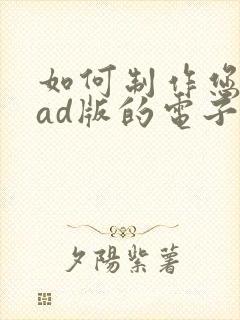 如何制作您
ad版的電子
夕陽紫薯